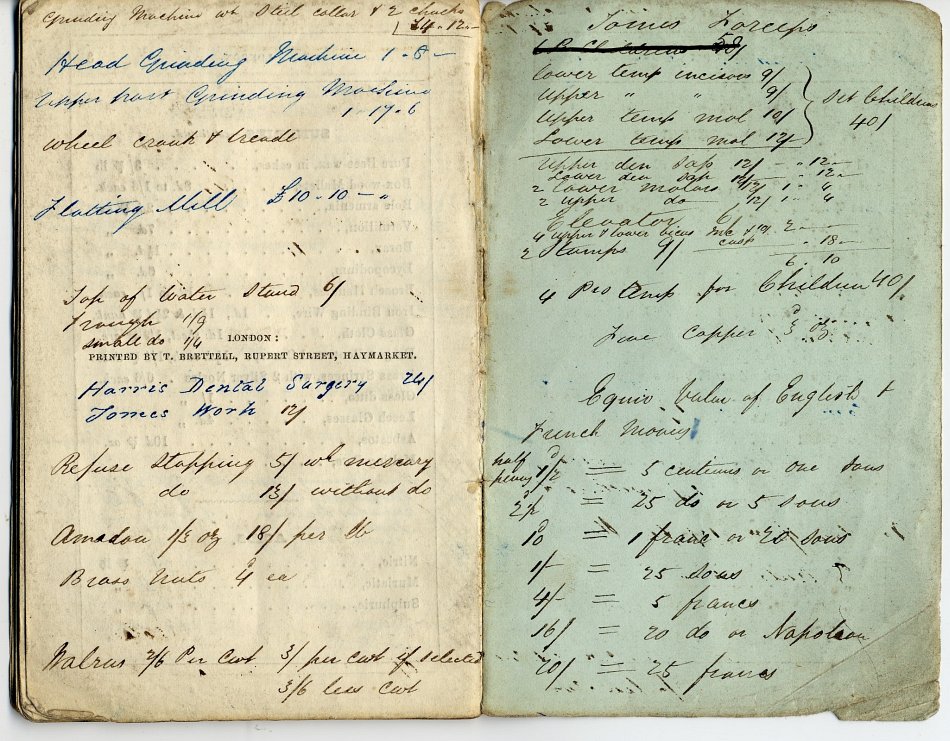 Grinding Machine wt Steel collar & 2 chucks
£4.12.-
Head Grinding Machine 1.8-
Upper part Grinding Machine
1.17.6
Wheel crank & treadle
Flatting Mill £10-10-"
Top of Water Stand 6/
Trough 1/9
Small do 1/4
LONDON:
PRINTED BY T. BRETTELL, RUPERT STREET, HAYMARKET.
Harris Dental Surgery 24/
Tomes Work 12/
Refuse Stopping 5/ wh mercury
do 13/ without do
Amadou 1/3 oz 18/ per lb
Brass Nuts 4d ea
Walrus 2/6 Per Cwt. 3/ per cwt if selected
3/6 less cwt
Tomes Forceps
lower temp incisors 9/
Upper " " 9/
Upper temp mol 10/
Lower temp mol 12/
Set Childrens
40/
Upper den sap 12/ - . 12 -
Lower den sap - . 12 -
2 Lower molars 1 . 4
2 Upper do 12/ 1 . 4
Elevator 6/
4 upper & lower 2 -
2 Stumps 9/ 18 -
6 . 10
4 Pro temp for Children 40/
Fine Copper 3d oz
Equiv Value of English &
French Money
half penny 1/2d = 5 centims or one Sous
2 1/2 = 25 do or 5 Sous
10d = 1 franc or 20 Sous
1/- = 25 Sous
4/- = 5 francs
16/ = 20 do or Napoleon
20/ = 25 francs